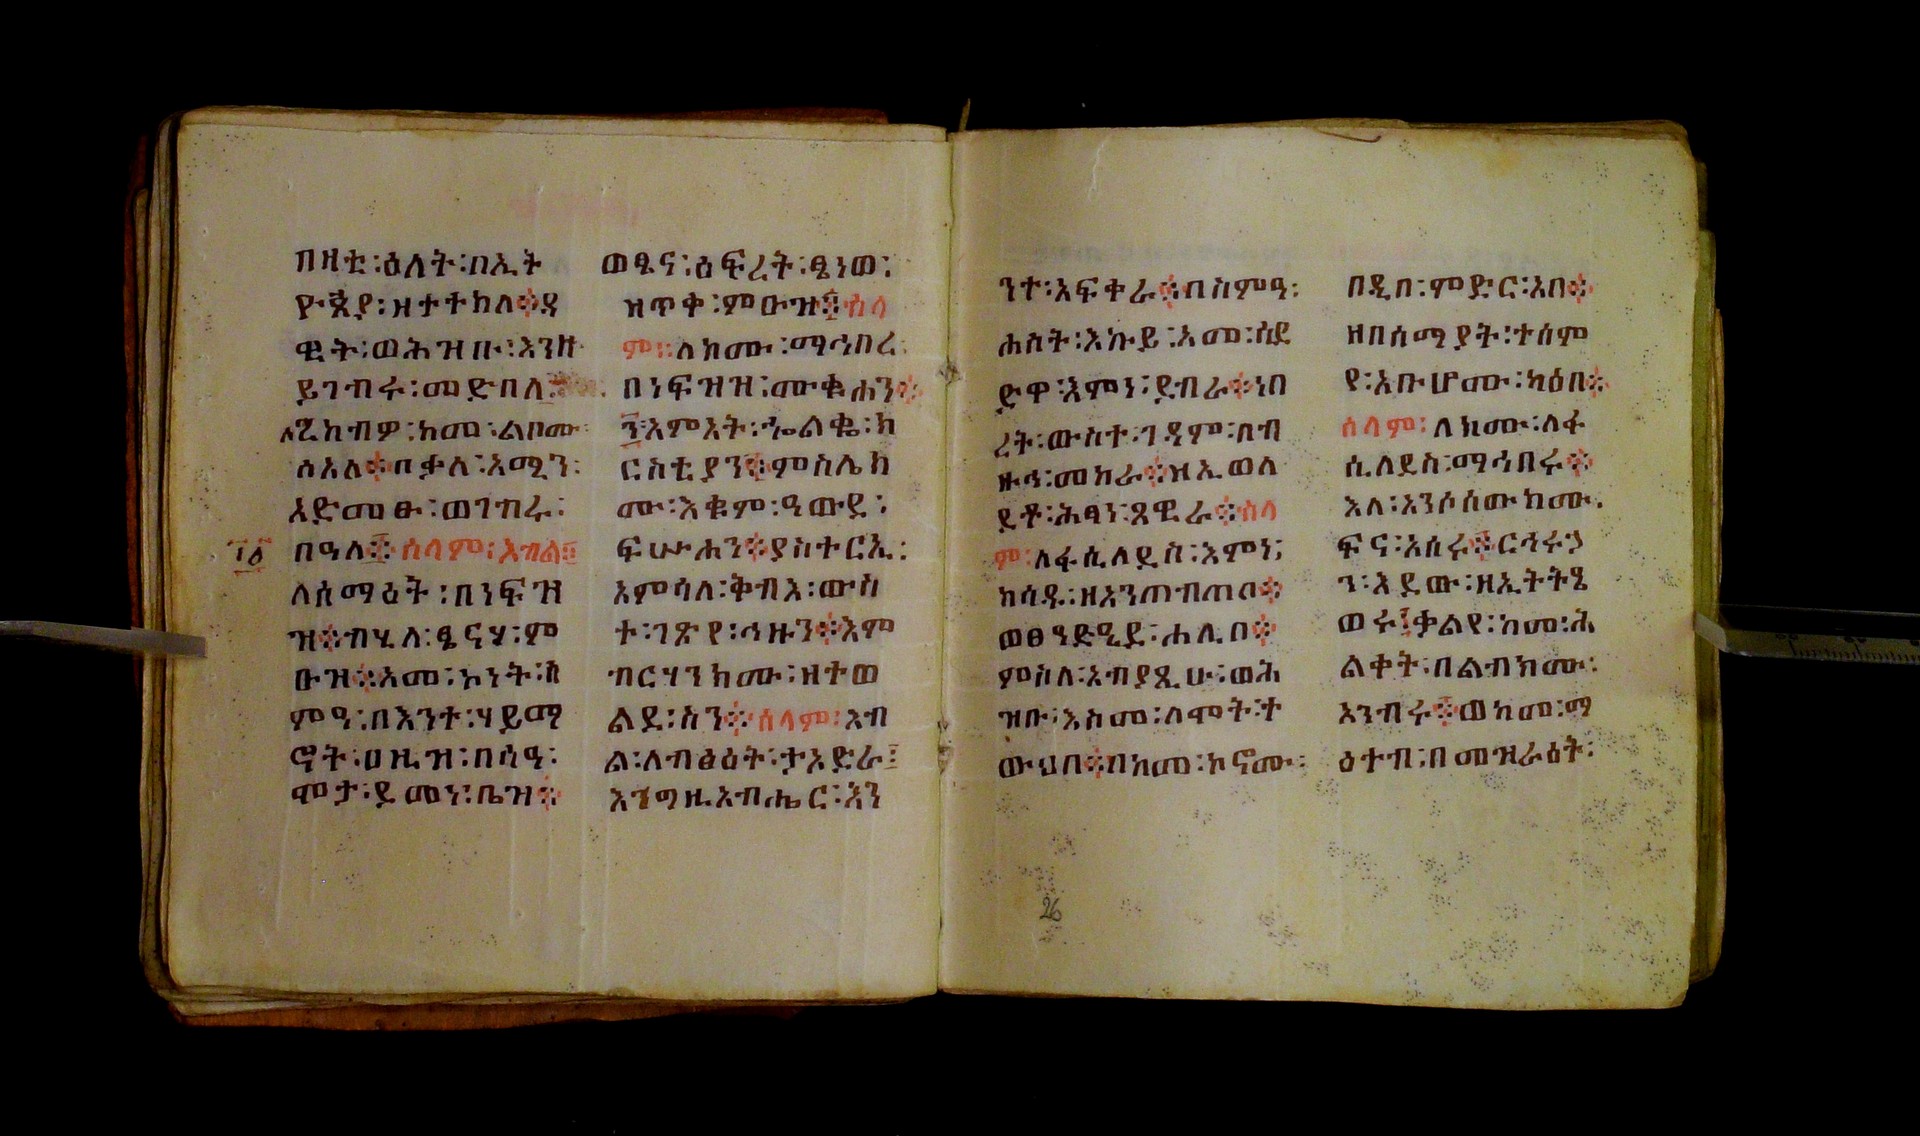 በዛቲ፡ዕለት፡በኢት
ዮጵያ፡ዘታተክለ፨ዳ
ዊት፡ወሕዝቡ፡እንዘ
ይገብሩ፡መድበለ
ከብዎ፡ከመ፡ልቡሙ
ሰአለ፨በቃለ፡አሚን፡
አድመፁ፡ወገብሩ፡
፲፬
በዓለ፨ሰላም፡እብል፨
ለሰማዕት፡በነፍዝ
ዝ፨ብሂለ፡ፄናሃ፡ም
ዑዝ፨አመ፡ኮነት፡ስ
ምዓ፡በእንተ፡ሃይማ
ኖት፡ሐዚዝ፡በሳዓ፡
ሞታ፡ደመነ፡ቤዝ፨
ወፄና፡ዕፍረት፡ፄነወ፡
ዝጥቀ፡ምዑዝ፨ሰላ
ም፡ለክሙ፡ማኅበረ፡
በነፍዝዝ፡ሙቁሐን፨
፶እምእት፡ኈልቈ፡ክ
ርስቲያን፨ምስሌክ
ሙ፡እቁም፡ዓውደ፡
ፍሡሐን፨ያስተርኢ፡
አምሳለ፡ቅብእ፡ውስ
ተ፡ገጽየ፡ኅዙን፨እም
ብርሃንክሙ፡ዘተወ
ልደ፡ስን፨ሰላም፡እብ
ል፡ለብፅዕት፡ታኦድራ፤
እግዚአብሔር፡እን
ንተ፡አፍቀራ፨በስምዓ፡
ሐሰት፡እኩይ፡አመ፡ሰደ
ድዋ፡እምነ፡ደብራ፨ነበ
ረት፡ውስተ፡ገዳም፡በብ
ዙኅ፡መከራ፨ዝኢወለ
ደቶ፡ሕፃነ፡ጸዊራ፨ሰላ
ም፡ለፋሲለደስ፡እምነ፡
ከሳዱ፡ዘአንጠብጠበ፨
ወፀዓድዒደ፡ሐሊበ፨
ምስለ፡አብያጺሁ፡ወሕ
ዝቡ፡እስመ፡ለሞት፡ተ
ውህበ፨በከመ፡ኮኖሙ፡
በዲበ፡ምድር፡አበ፨
ዘበሰማያት፡ተሰም
የ፡አቡሆሙ፡ካዕበ፨
ሰላም፡ለክሙ፡ለፋ
ሲለደስ፡ማኅበሩ፨
እለ፡አንሶሰውክሙ፡
ፍና፡አሰሩ፨ርኅሩኃ
ን፡አደው፡ዘኢትትዔ
ወሩ፤ቃልየ፡ከመ፡ሕ
ልቀት፡በልብክሙ፡
አንብሩ፨ወከመ፡ማ
ዕተብ፡በመዝራዕት፡
26